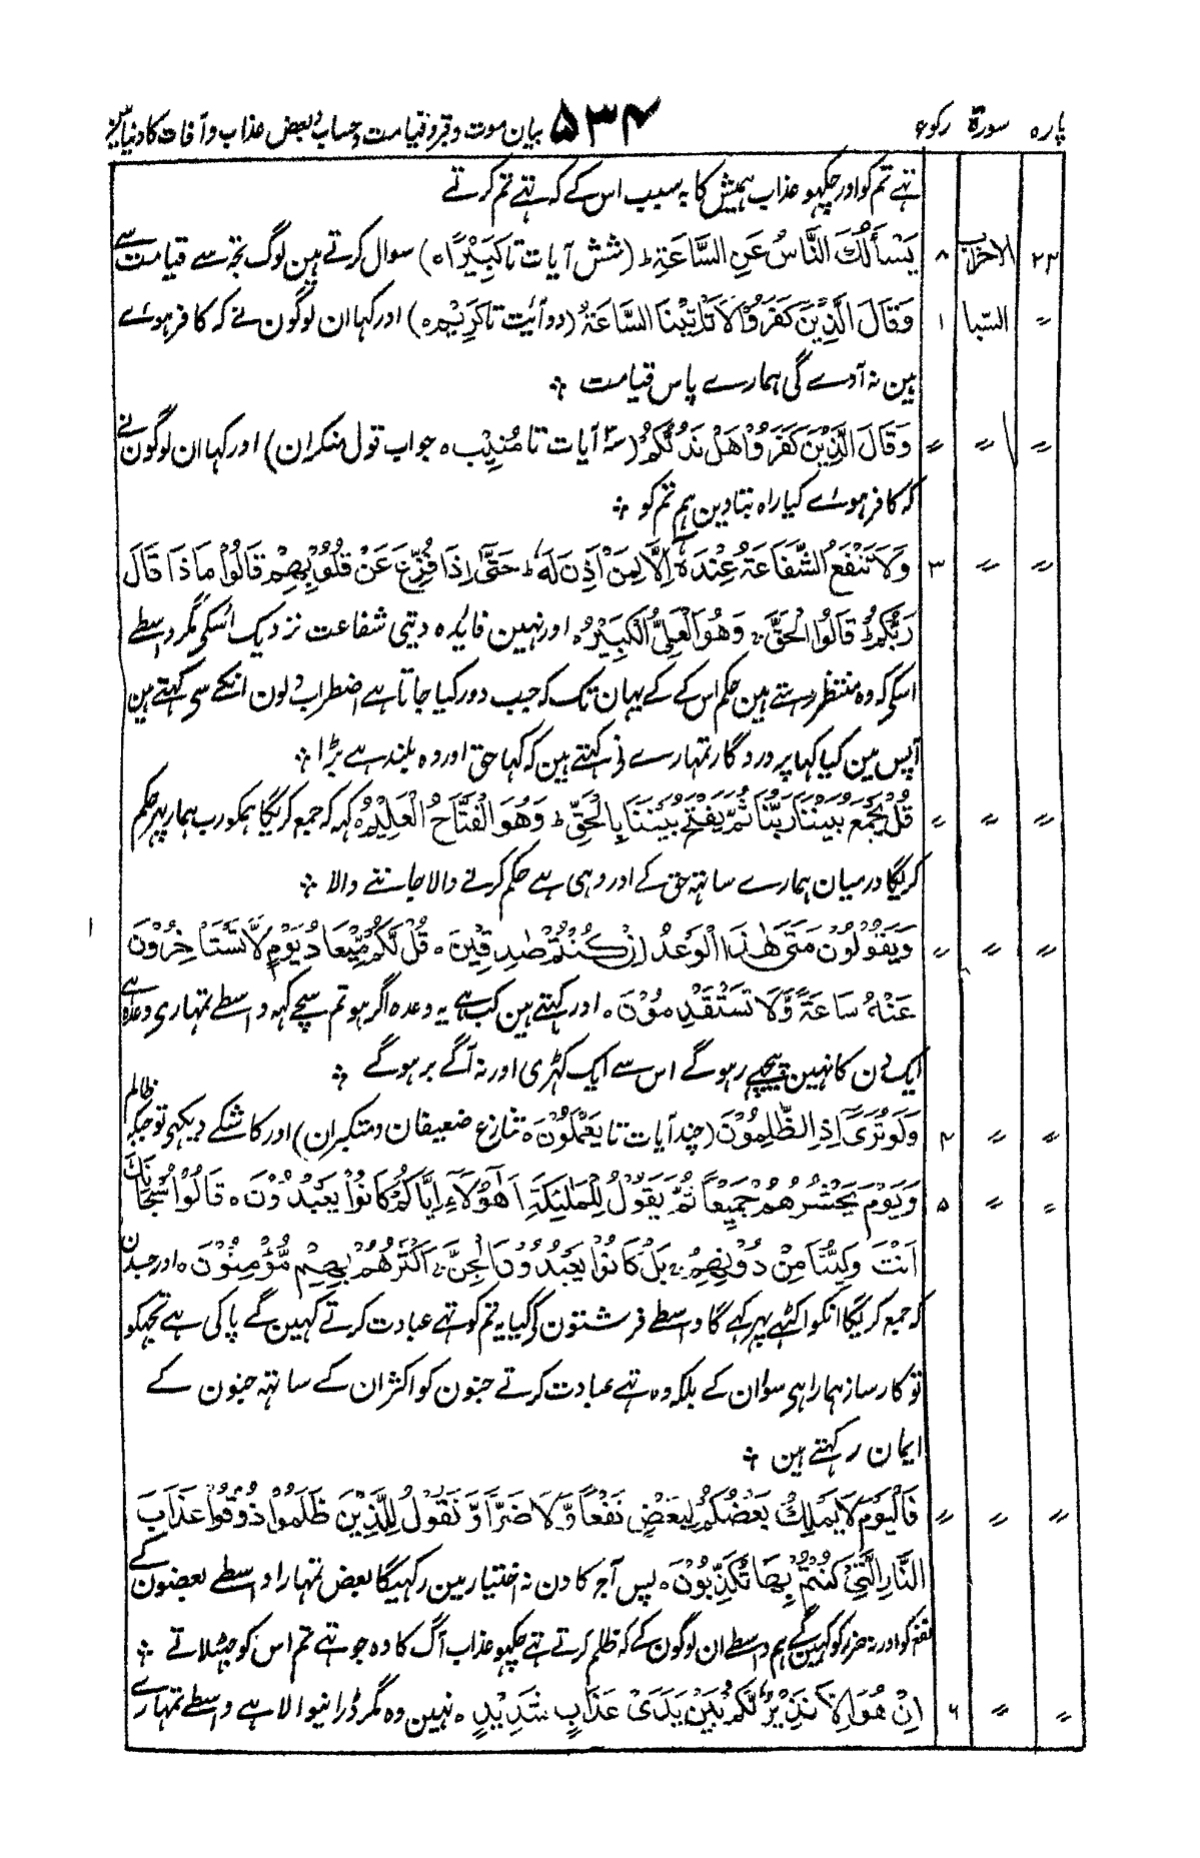 پارہ سورۃ رکوع ۵۳۴ بیان موت و قبر و قیامت و حساب و بعض عذاب و آفات کا دنیا مین
تہے تم کو اور چکہو عذاب ہمیش کا بہ سبب اس کے کہ تہے تم کرتے
۲۲ الاحزاب ۸ يَسْأَلُكَ النَّاسُ عَنِ السَّاعَةِ ط (شش آیات تا كَبِيْرًا ہ) سوال کرتے ہین لوگ تجہ سے قیامت سے
〃 السّبا ۱ وَقَالَ الَّذِيْنَ كَفَرُوْا لَا تَاْتِيْنَا السَّاعَةُ (دو آئیت تا كَرِيْم ہ) اور کہا ان لوگون نے کہ کافر ہوئے
ہین نہ آوے گی ہمارے پاس قیامت ؞
〃 〃 〃 وَقَالَ الَّذِيْنَ كَفَرُوْا هَلْ نَدُلُّكُمْ (آیات تا مُنِيْب ہ جواب قول منکران) اور کہا ان لوگون نے
کہ کافر ہوئے کیا راہ بتا دین ہم تم کو ؞
〃 〃 ۳ وَلَا تَنْفَعُ الشَّفَاعَةُ عِنْدَهٗٓ اِلَّا لِمَنْ اَذِنَ لَهٗ ط حَتّٰٓى اِذَا فُزِّعَ عَنْ قُلُوْبِهِمْ قَالُوْا مَاذَا قَالَ
رَبُّكُمْ ط قَالُوا الْحَقَّ ۚ وَهُوَ الْعَلِيُّ الْكَبِيْرُ ہ اور نہین فایدہ دیتی شفاعت نزدیک اُسکی مگر واسطے
اسکی کہ وہ منتظر رہتے ہین حکم اس کے کے یہان تک کہ جب دور کیا جاتا ہے اضطراب دلون انکے سی کہتے ہین
آپس مین کیا کہا پروردگار تمہارے نی کہتے ہین کہ کہا حق اور وہ بلند ہے بڑا ؞
〃 〃 〃 قُلْ يَجْمَعُ بَيْنَنَا رَبُّنَا ثُمَّ يَفْتَحُ بَيْنَنَا بِالْحَقِّ ط وَهُوَ الْفَتَّاحُ الْعَلِيْمُ ہ کہہ کہ جمع کریگا ہمکو رب ہمارا پہر حکم
کریگا درمیان ہمارے ساتہہ حق کے اور وہی ہے حکم کرنے والا جاننے والا ؞
〃 〃 〃 وَيَقُوْلُوْنَ مَتٰى هٰذَا الْوَعْدُ اِنْ كُنْتُمْ صٰدِقِيْنَ ہ قُلْ لَّكُمْ مِّيْعَادُ يَوْمٍ لَّا تَسْتَاْخِرُوْنَ
عَنْهُ سَاعَةً وَّلَا تَسْتَقْدِمُوْنَ ہ اور کہتے ہین کب ہے یہ وعدہ اگر ہو تم سچے کہہ واسطے تمہاری وعدہ ہے
ایک دن کا نہین پیچہے رہو گے اس سے ایک گہڑی اور نہ آگے بر ہو گے ؞
〃 〃 ۴ وَلَوْ تَرٰٓى اِذِ الظّٰلِمُوْنَ (چند آیات تا يَعْمَلُوْنَ ہ تنازع ضعیفان و متکبران) اور کاشکے دیکہی تو جبکہ ظالم
〃 〃 ۵ وَيَوْمَ يَحْشُرُهُمْ جَمِيْعًا ثُمَّ يَقُوْلُ لِلْمَلٰٓئِكَةِ اَهٰٓؤُلَآءِ اِيَّاكُمْ كَانُوْا يَعْبُدُوْنَ ہ قَالُوْا سُبْحَانَكَ
اَنْتَ وَلِيُّنَا مِنْ دُوْنِهِمْ ۚ بَلْ كَانُوْا يَعْبُدُوْنَ الْجِنَّ ۚ اَكْثَرُهُمْ بِهِمْ مُّؤْمِنُوْنَ ہ اور جسدن
کہ جمع کریگا انکو اکٹہے پہر کہے گا واسطے فرشتون کی کیا یہ تم کو تہے عبادت کرتے کہین گے پاکی ہے تجہکو
تو کارساز ہمارا ہی سوا ان کے بلکہ وہ تہے عبادت کرتے جنون کو اکثر ان کے ساتہہ جنون کے
ایمان رکہتے ہین ؞
〃 〃 〃 فَالْيَوْمَ لَا يَمْلِكُ بَعْضُكُمْ لِبَعْضٍ نَفْعًا وَّلَا ضَرًّا وَّنَقُوْلُ لِلَّذِيْنَ ظَلَمُوْا ذُوْقُوْا عَذَابَ
النَّارِ الَّتِيْ كُنْتُمْ بِهَا تُكَذِّبُوْنَ ہ پس آج کا دن نہ اختیار مین رکہیگا بعض تمہارا واسطے بعضون کے
نفع کو اور نہ ضرر کو کہین گے ہم واسطے ان لوگون کے کہ ظلم کرتے تہے چکہو عذاب آگ کا وہ جو تہے تم اس کو جہٹلاتے ؞
〃 〃 ۶ اِنْ هُوَ اِلَّا نَذِيْرٌ لَّكُمْ بَيْنَ يَدَيْ عَذَابٍ شَدِيْدٍ ہ نہین وہ مگر ڈرانیوالا ہے واسطے تمہارے